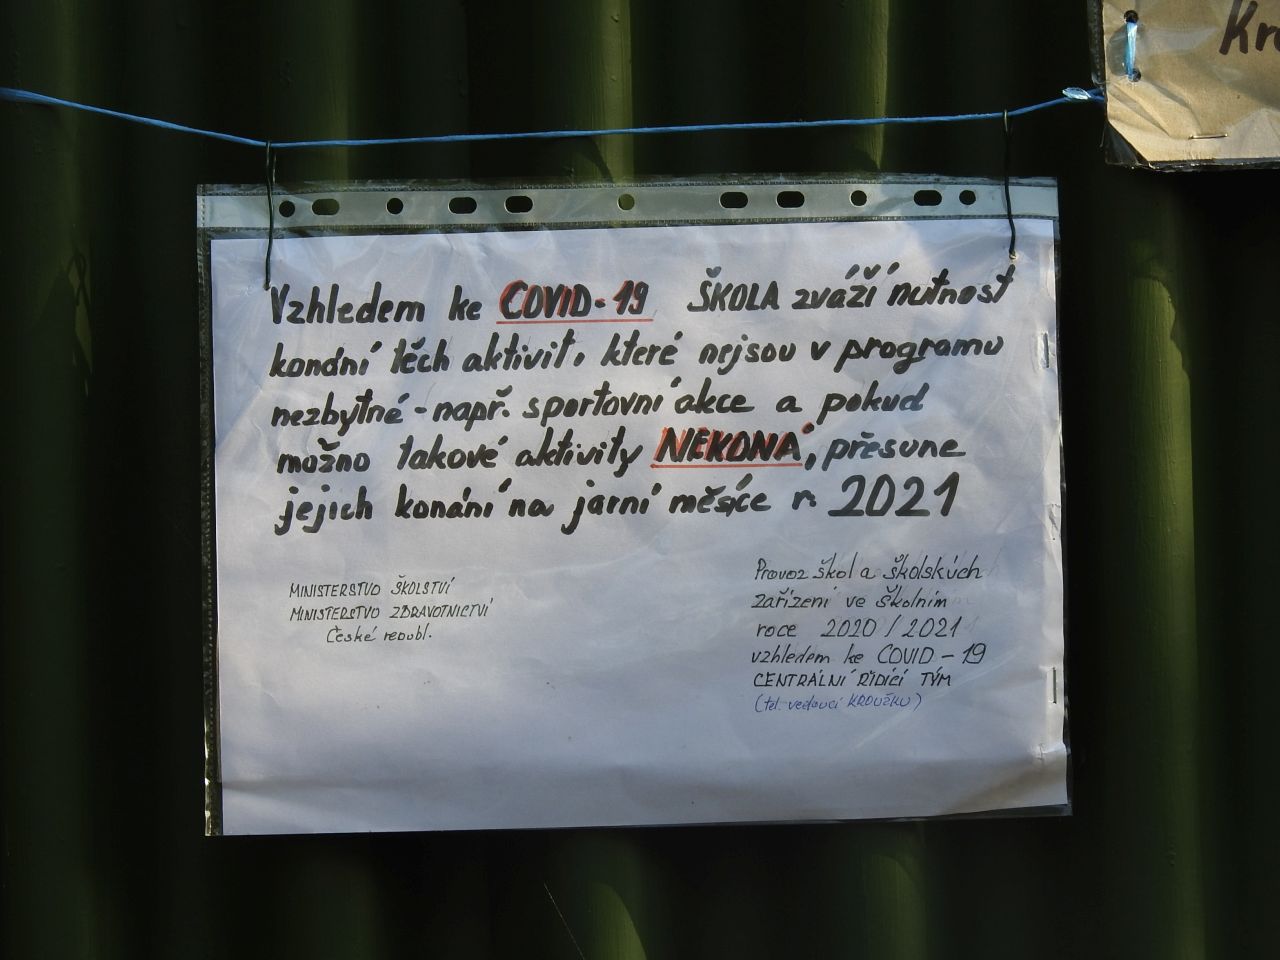 Vzhledem ke COVID-19 ŠKOLA zváží nutnost
kondní těch aktivit, které nejsou v programu
nezbytné - např. sportovní akce a pokud
možno takové aktivity NEKONÁ, přesune
jejich konání na jarní měsíce r. 2021
MINISTERSTVO ŠKOLSTVÍ
MINISTERSTVO ZDRAVOTNICTVÍ
České republ.
Provoz škol a školských
zařízení ve školním
roce 2020/2021
vzhledem ke COVID-19
CENTRÁLNÍ ŘÍDÍCÍ TÝM
(tel. vedoucí KROUŽKU)